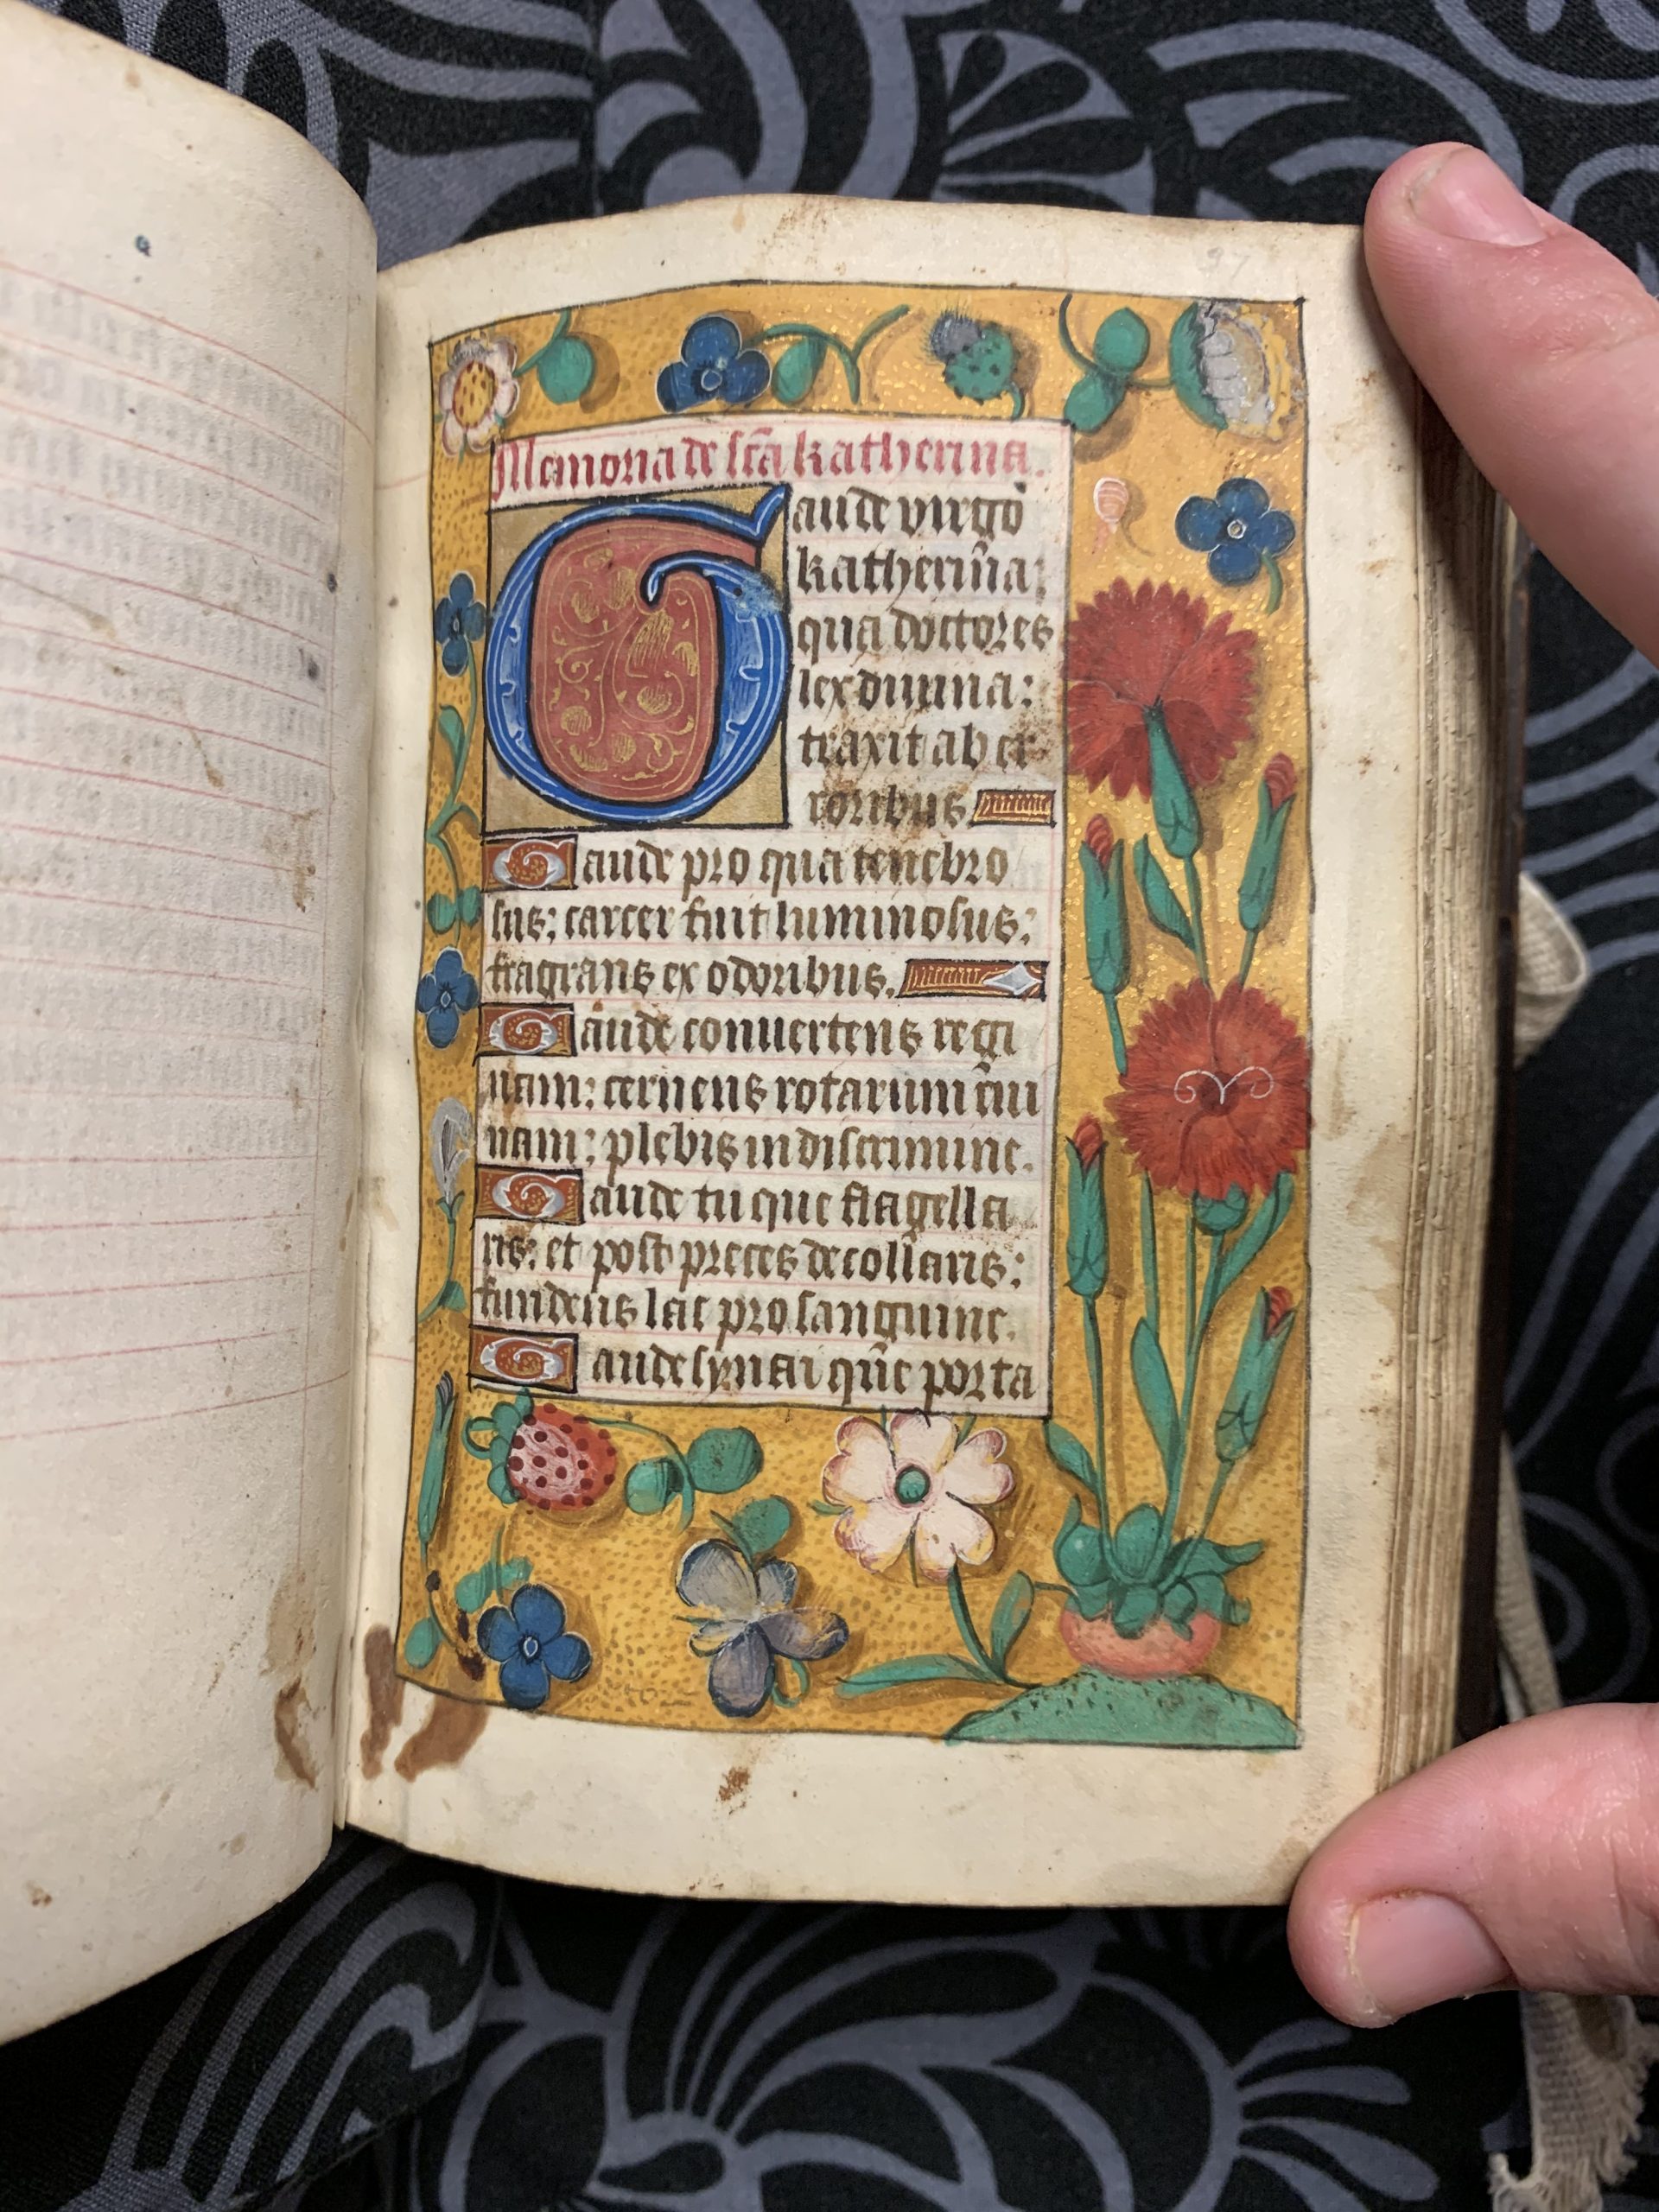 97
Memoria de sc̄a katherina.
Gaude virgo
katherīna:
qua doctores
lex diuina:
traxit ab er
roribus.
Gaude pro qua tenebro
sus: carcer fuit luminosus:
fragrans ex odoribus.
Gaude conuertens regi
nam: cernens rotarum rui
nam: plebis in discrimine.
Gaude tu que flagella
ris: et post preces decollaris:
fundens lac pro sanguine.
Gaude synai que porta